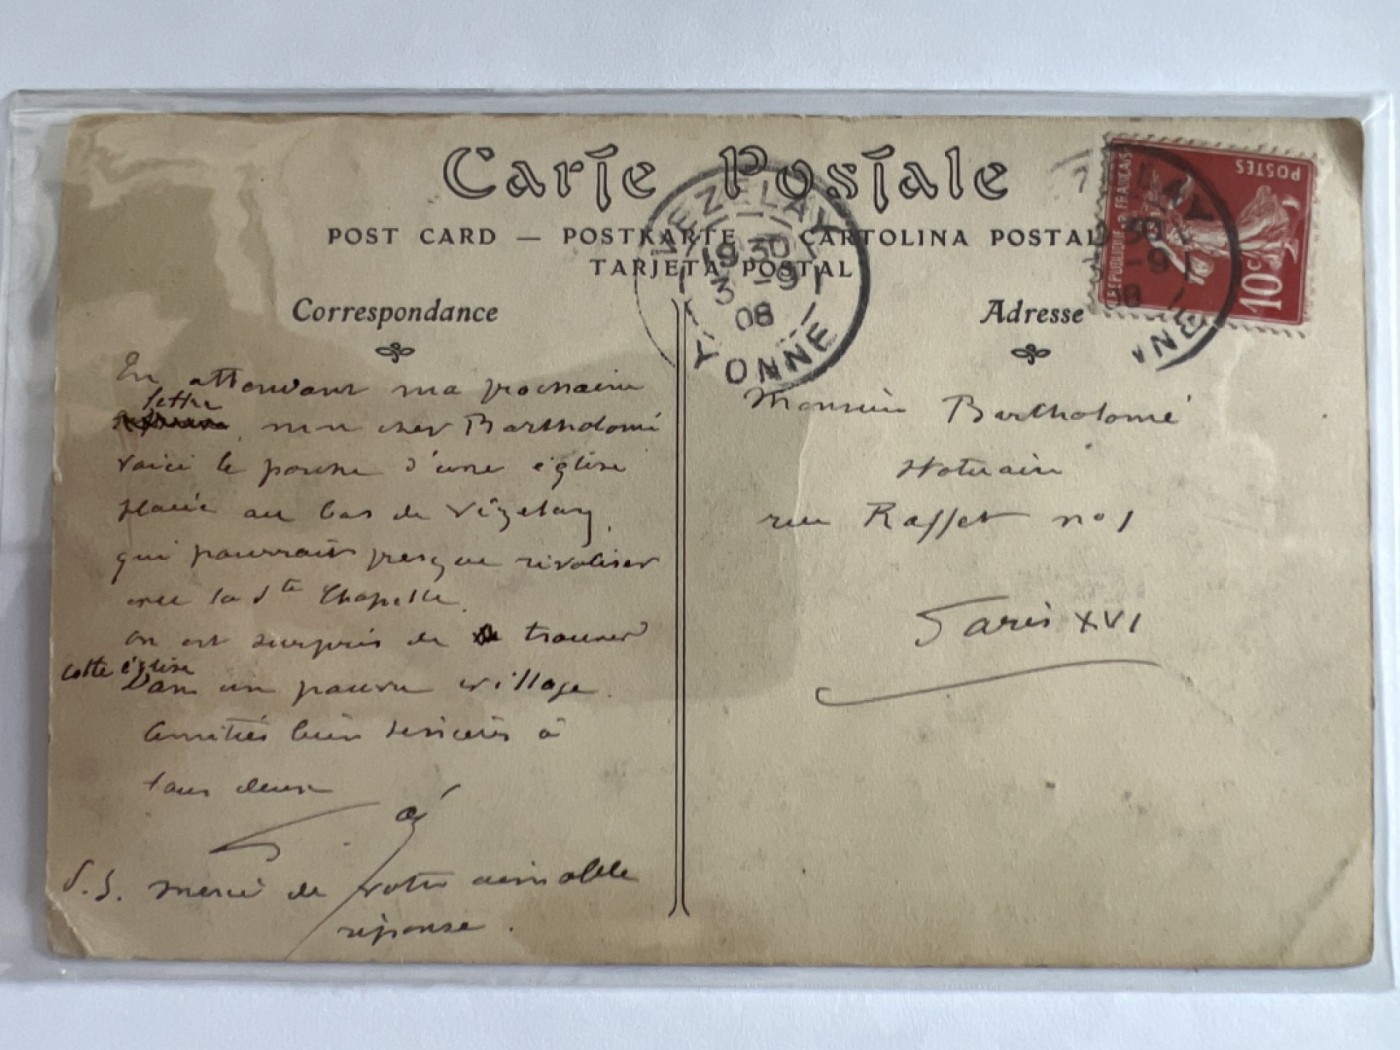 Carte Postale
POST CARD — POSTKARTE — CARTOLINA POSTALE
TARJETA POSTAL
VEZELAY
19 30
3 -9
08
YONNE
RÉPUBLIQUE FRANÇAISE
POSTES
10c
Correspondance
En attendant ma prochaine
lettre
mon cher Bartholomé
voici le porche d'une église
placée au bas de Vézelay,
qui pourrait presque rivaliser
avec la Ste Chapelle.
on est surpris de trouver
cette église
Dans un pauvre village.
Amitiés bien sincères à
tous deux
P.S. merci de votre aimable
réponse.
Adresse
Monsieur Bartholomé
Statuaire
rue Raffet no 1
Paris XVI